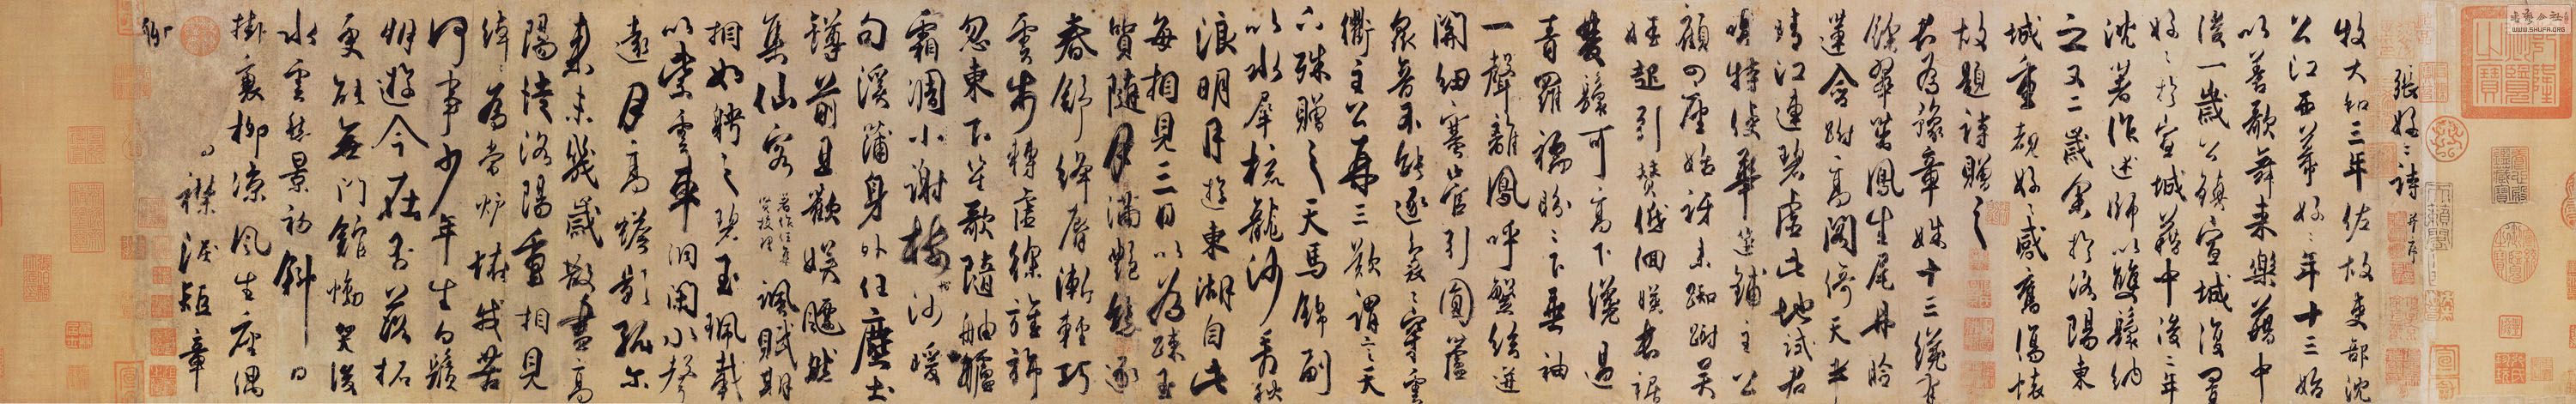 張好好詩 并序
牧大和三年佐故吏部沈
公江西幕好好年十三始
以善歌舞來樂籍中
後一歲公鎮宣城復置
好好於宣城籍中後二年
沈著作述師以雙鬟納
之又二歲余於洛陽東
城重覩好好感舊傷懷
故題詩贈之
君為豫章姝十三纔有
餘翠茁鳳生尾丹臉
蓮含跗高閣倚天半
晴江連碧虛此地試君
唱特使華筵鋪主公
顧四座始訝來踟躕吳
娃起引贊低佪暎長裾
雙鬟可高下纔過
青羅襦盼盼下垂袖
一聲離鳳呼繁絃迸
關紐塞管引圓蘆
衆音不能逐裊裊穿雲
衢主公再三歎謂言天
下殊贈之天馬錦副
以水犀梳龍沙看秋
浪明月遊東湖自此
每相見三日以為疎玉
質隨月滿豔態逐
春舒絳脣漸輕巧
雲步轉虛徐旌旆
忽東下笙歌隨舳艫
霜凋小謝樓樹沙暖
句溪蒲身外任塵土
罇前且歡娛飄然
集仙客 著作任集賢校理 諷賦期
相如聘之碧玉珮載
以紫雲車洞閉水聲
遠月高蟾影孤爾
來未幾歲散盡高
陽徒洛陽重相見
綽綽為當壚怪我苦
何事少年生白髭
朋遊今在否落拓
更能無門館慟哭後
水雲愁景初斜日
掛衰柳涼風生座隅
襟淚短章
聊
WWW.SHUFA.ORG